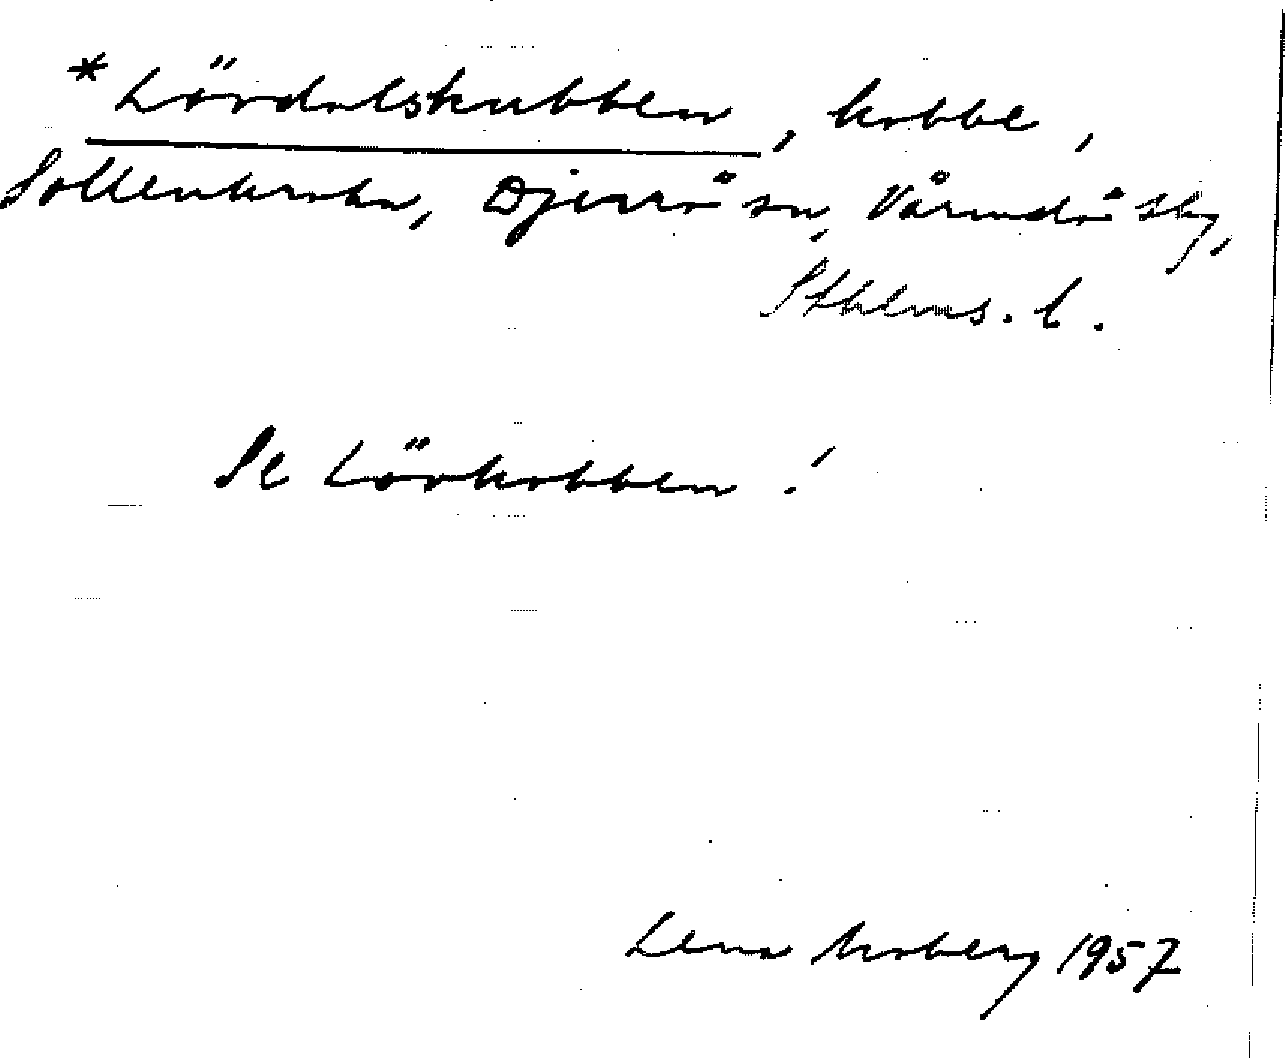 *Lördalskubben, kobbe,
Sollenkroka, Djurö sn, Värmdö skg,
Sthlms. l.
Se Lövkobben!
Lena Moberg 1957